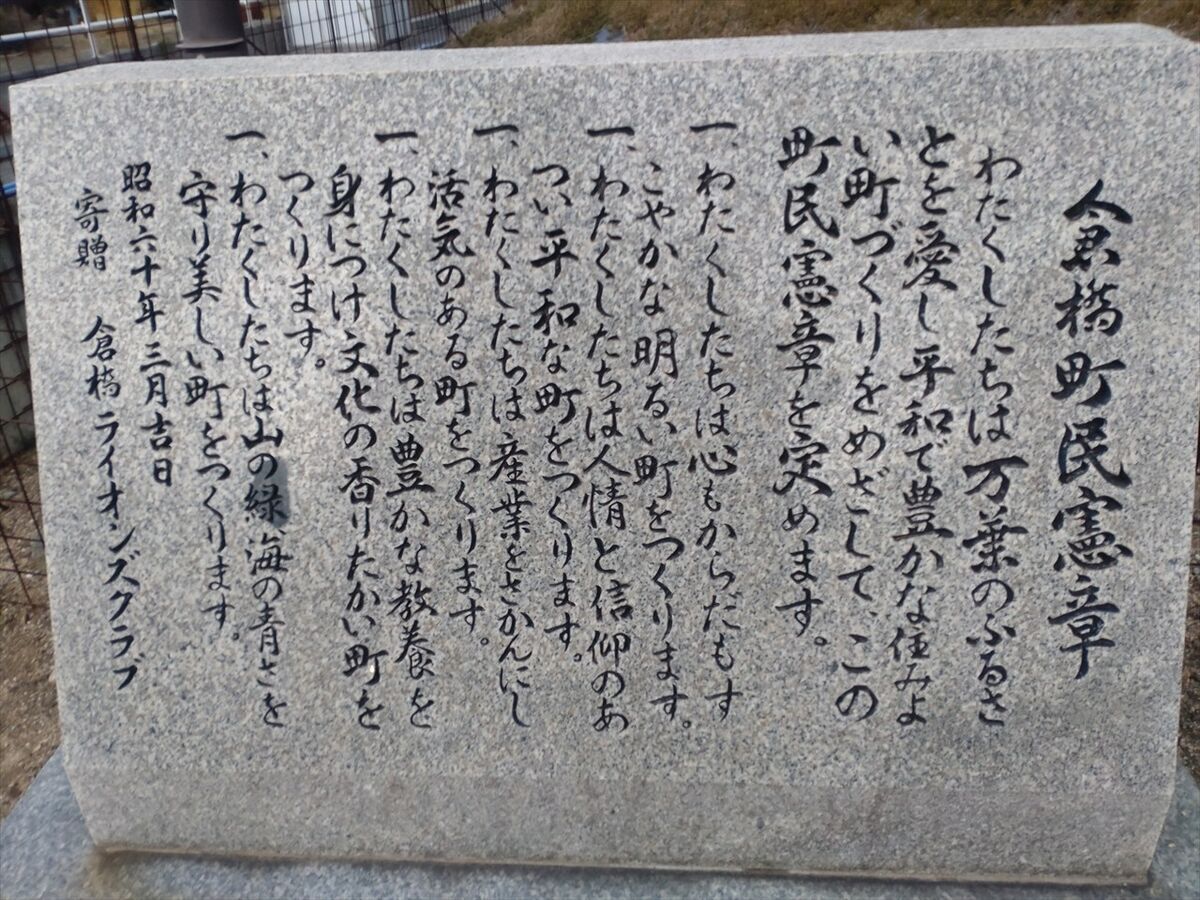 倉橋町民憲章
わたくしたちは万葉のふるさ
とを愛し平和で豊かな住みよ
い町づくりをめざして、この
町民憲章を定めます。
一、わたくしたちは心もからだもす
こやかな明るい町をつくります。
一、わたくしたちは人情と信仰のあ
つい平和な町をつくります。
一、わたくしたちは産業をさかんにし
活気のある町をつくります。
一、わたくしたちは豊かな教養を
身につけ文化の香りたかい町を
つくります。
一、わたくしたちは山の緑、海の青さを
守り美しい町をつくります。
昭和六十年三月吉日
寄贈 倉橋ライオンズクラブ